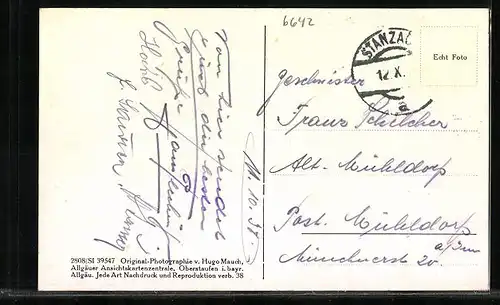 6642
Von hier sendet
Euch die besten
Grüße
Hans
11.10.38
STANZAC
12.X.
Echt Foto
Geschwister
Franz Schilcher
Alt. Mühldorf
Post. Mühldorf
a/Inn
Münchnerstr 20.
2808/SI 39547 Original-Photographie v. Hugo Mauch,
Allgäuer Ansichtskartenzentrale, Oberstaufen i. bayr.
Allgäu. Jede Art Nachdruck und Reproduktion verb. 38